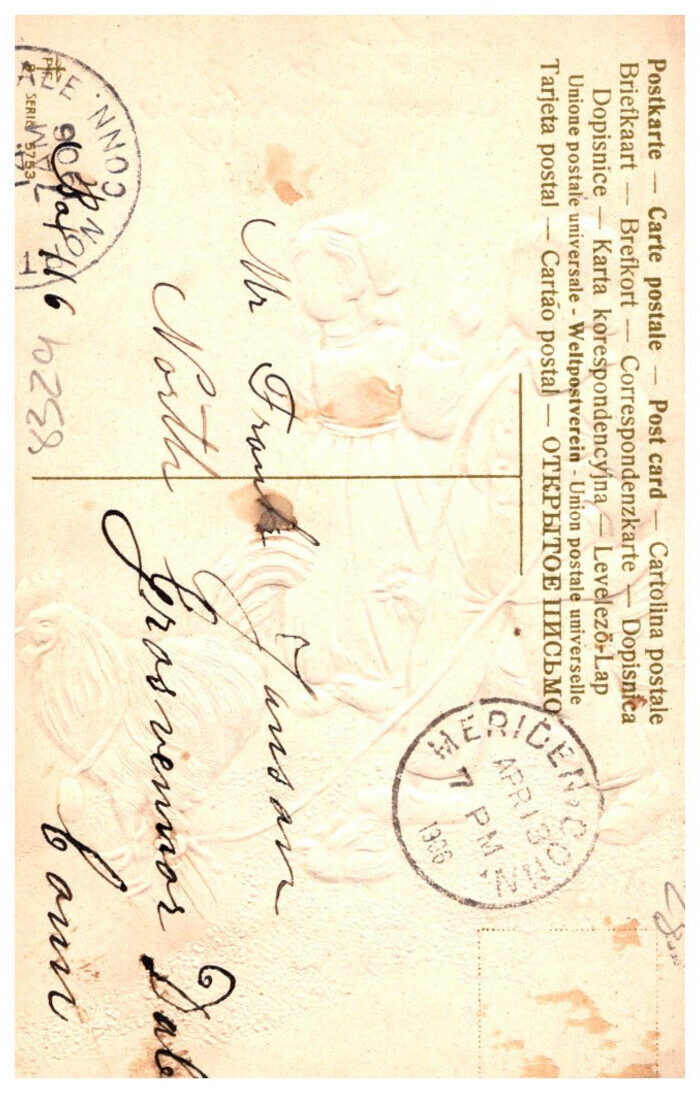 Postkarte — Carte postale — Post card — Cartolina postale
Briefkaart — Brefkort — Correspondenzkarte — Dopisnica
Dopisnice — Karta korespondencyjna — Levelező-Lap
Unione postale universale - Weltpostverein - Union postale universelle
Tarjeta postal — Cartáo postal — ОТКРЫТОЕ ПИСЬМО
MERIDEN, CONN.
APR 30
7 PM
1906
Mr Frank Jansan
North Grosvennor Dale
Conn
CONN.
SERIE 5753